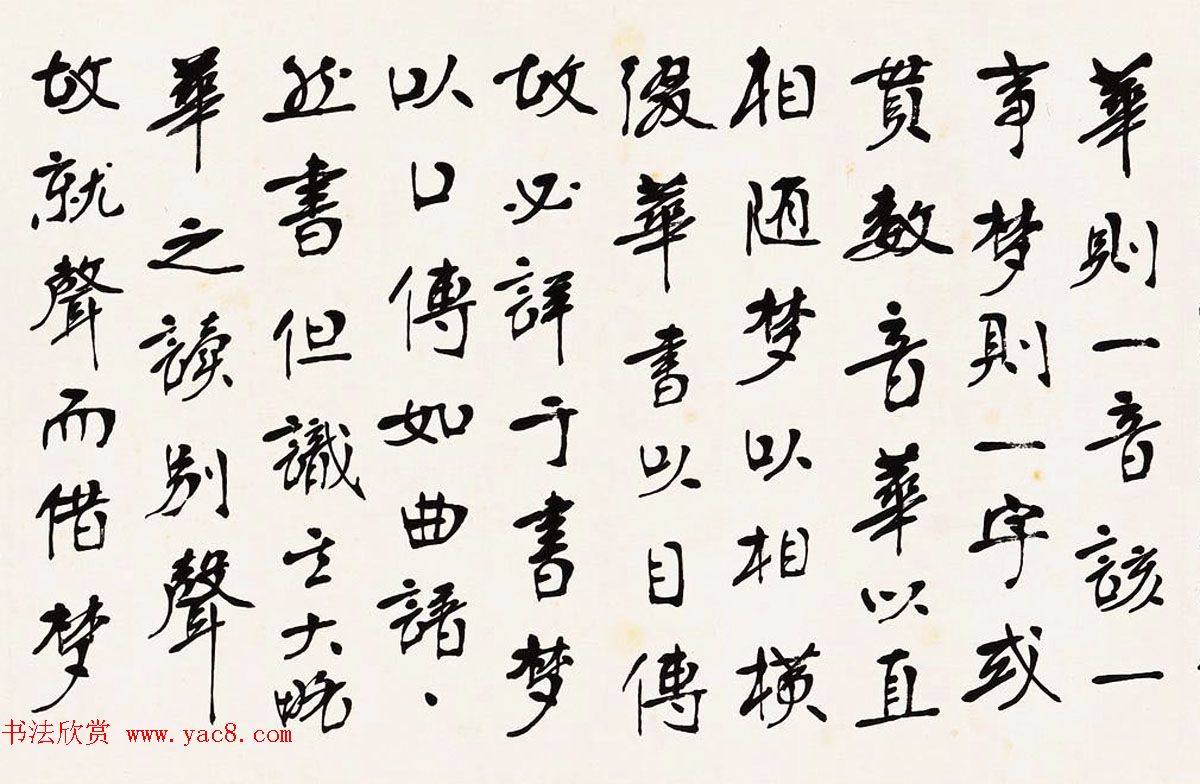 華則一音該一
事梵則一字或
貫數音華以直
相随梵以相橫
綴華書以目傳
故必詳于書梵
以口傳如曲譜、
然書但識其大略
華之讀別聲
故就聲而借梵
书法欣赏 www.yac8.com